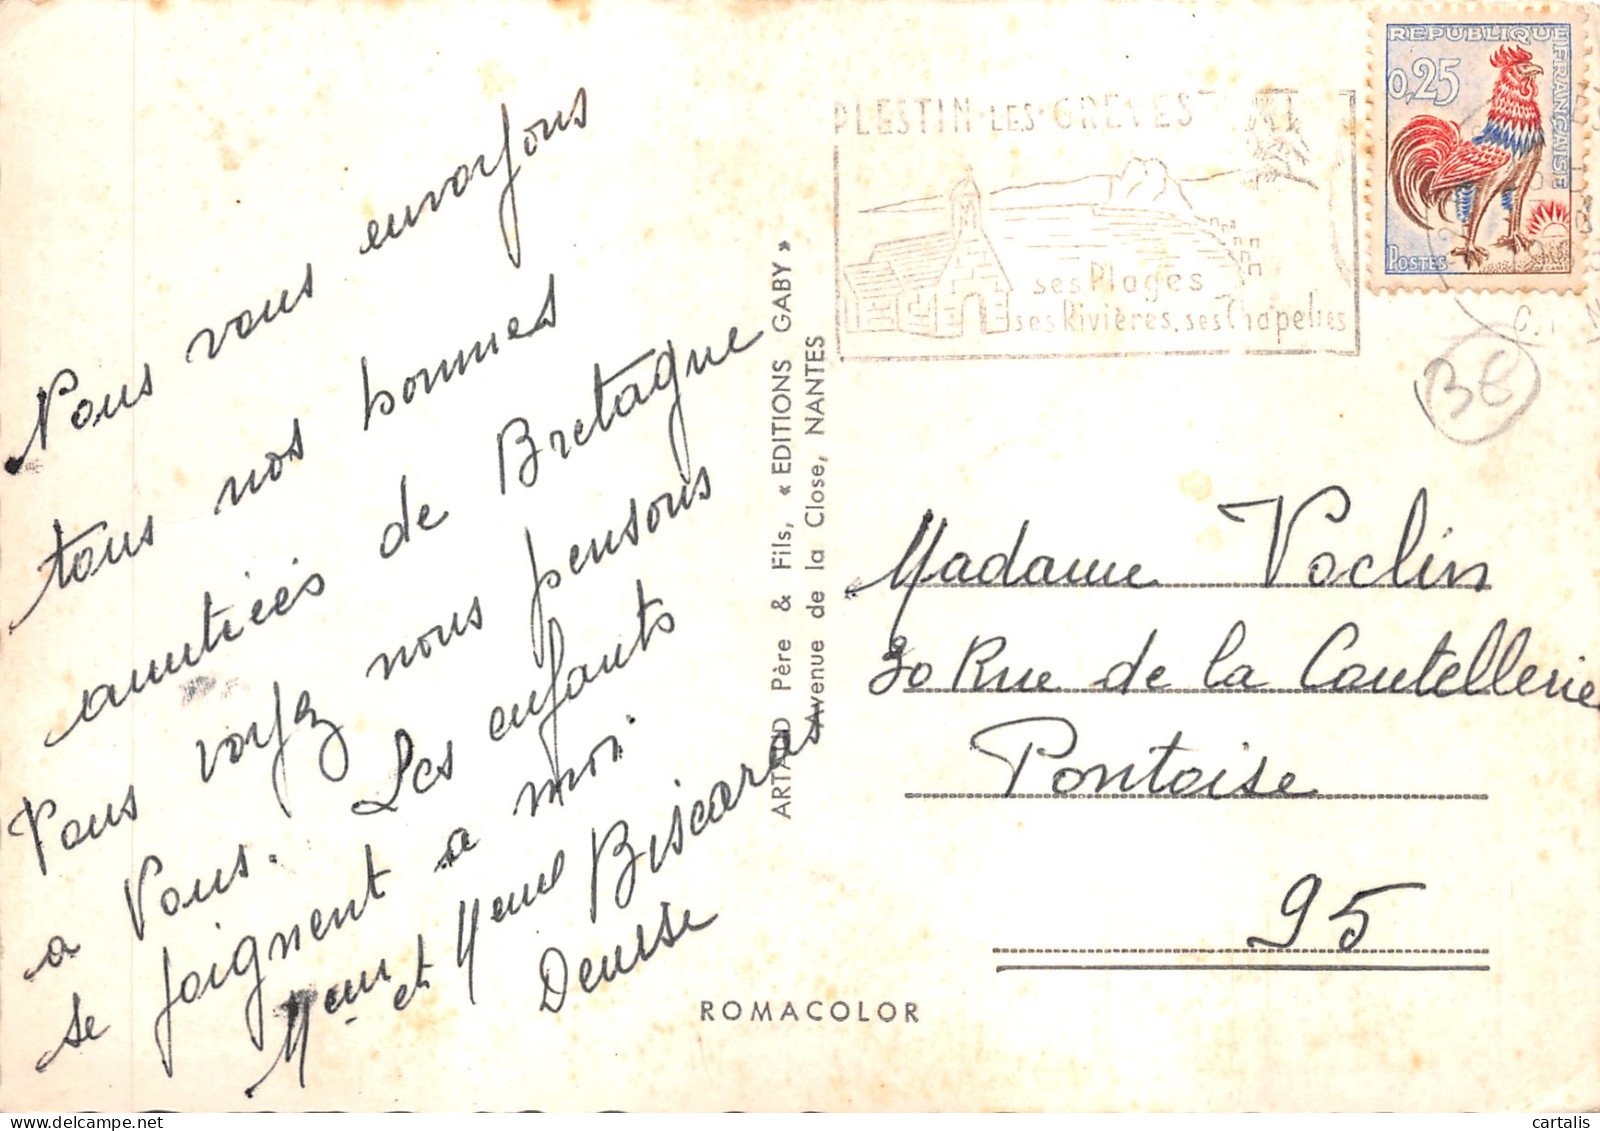 Nous vous envoyons
tous nos bonnes
amitiées de Bretagne
Vous voyez nous pensons
a Vous. Les enfants
se joignent a moi.
Meur et Meme Biscaras
Denise
ARTAUD Père & Fils, « EDITIONS GABY »
Avenue de la Close, NANTES
ROMACOLOR
PLESTIN-LES-GREVES
ses Plages
ses Rivières, ses Chapelles
REPUBLIQUE FRANÇAISE
0,25
POSTES
BE
Madame Voclin
30 Rue de la Coutellerie
Pontoise
95
cartalis